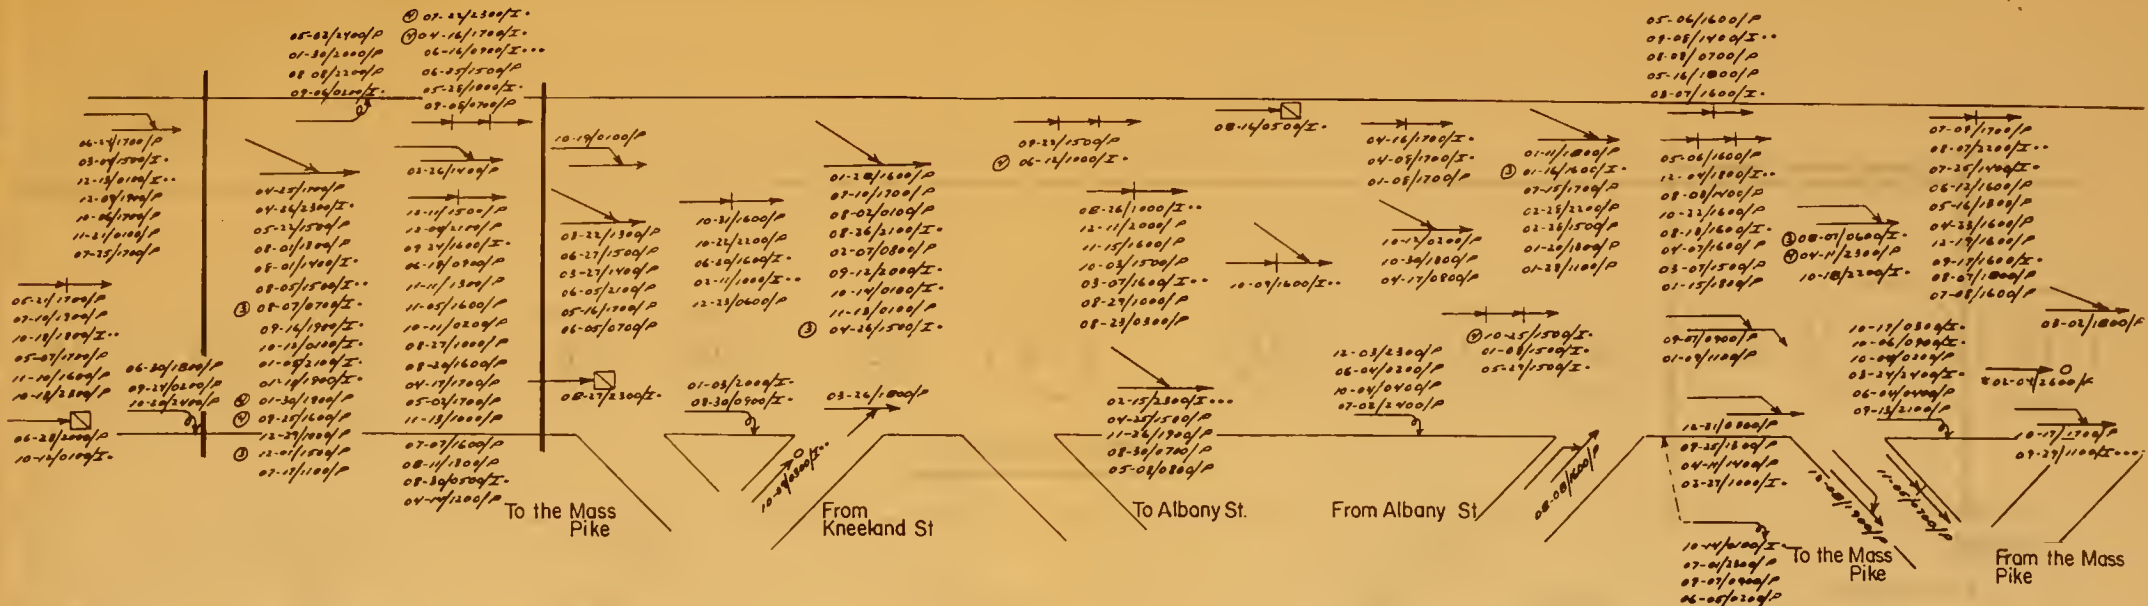 05-02/2400/P
01-30/2000/P
08-08/2200/P
09-06/0200/I.
④ 07-22/2300/I
④ 04-16/1700/I.
06-16/0900/I...
06-25/1500/P
05-28/1000/I.
09-08/0700/P
03-04/1500/I.
12-13/0100/I..
12-09/1900/P
10-06/1700/P
11-21/0100/P
07-25/1700/P
05-21/1700/P
07-10/1900/P
10-18/1800/I..
05-07/1700/P
11-10/1600/P
10-18/2300/P
06-30/1800/P
09-24/0200/P
10-20/2400/P
06-28/2000/P
10-12/0100/I.
04-26/2300/I.
05-22/1500/P
08-01/1800/P
08-01/1400/I.
08-05/1500/I..
③ 08-07/0700/I.
09-16/1900/I.
10-12/0100/I.
01-05/2100/I.
01-30/1900/P
④ 09-25/1600/P
12-29/1000/P
③ 12-01/1500/P
07-17/1100/P
02-26/1400/P
12-11/1500/P
12-04/2100/P
09-24/1600/I.
06-18/0900/P
11-11/1300/P
11-05/1600/P
10-11/0200/P
08-27/1000/P
08-20/1600/P
04-17/1700/P
05-02/1700/P
11-13/1000/P
07-07/1600/P
08-11/1800/P
08-30/0500/I.
04-14/1200/P
10-19/0100/P
08-22/1300/P
06-27/1500/P
03-27/1400/P
06-05/2100/P
05-16/1700/P
06-05/0700/P
08-27/2300/I.
10-31/1600/P
10-22/2200/P
06-20/1600/I.
02-11/1000/I..
12-23/0600/P
01-03/2000/I.
08-30/0900/I.
01-28/1600/P
07-10/1700/P
08-02/0100/P
08-26/2100/I.
02-07/0800/P
09-12/2000/I.
10-14/0100/I.
11-13/0100/P
③ 04-26/1500/I.
03-26/1800/P
09-23/1500/P
④ 06-12/1000/I.
08-26/1000/I..
12-11/2000/P
11-15/1600/P
10-03/1500/P
03-07/1600/I..
08-29/1000/P
08-23/0300/P
02-15/2300/I...
04-25/1500/P
11-26/1900/P
08-30/0700/P
05-08/0800/P
08-16/0500/I.
10-09/1600/I..
04-16/1700/P
04-05/1700/P
01-05/1700/P
10-12/0200/P
10-30/1800/P
04-17/0900/P
12-03/2300/P
06-04/0200/P
10-04/0400/P
07-02/2400/P
④ 10-25/1500/I.
01-08/1500/I.
05-29/1500/I.
01-11/1800/P
③ 01-16/1600/I.
07-15/1700/P
02-25/2200/P
02-26/1500/P
01-20/1800/P
01-28/1100/P
05-06/1600/P
09-05/1400/I..
08-08/0700/P
05-16/1800/P
08-07/1600/I.
05-06/1600/P
12-04/1800/I..
08-03/1400/P
10-22/1600/P
08-18/1600/I.
04-07/1600/P
03-07/1500/P
01-15/1800/P
09-07/0900/P
01-09/1100/P
12-21/0800/P
09-25/1300/P
04-14/1400/P
02-27/1000/I.
10-14/0100/I.
07-01/2300/P
09-07/0900/P
06-05/0200/P
③ 08-07/0600/I.
④ 04-11/2300/P
10-18/2200/I.
07-09/1700/P
08-07/2200/I..
07-25/1400/I.
06-12/1600/P
05-16/1800/P
04-23/1600/P
12-19/1600/P
09-17/1600/I.
08-07/1800/P
07-08/1600/P
10-17/0300/I.
10-06/0900/I.
10-04/0200/P
03-24/2400/I.
06-04/0400/P
09-13/2100/P
03-02/1800/P
10-17/1700/P
09-29/1100/I....
To the Mass
Pike
From
Kneeland St
To Albany St.
From Albany St
To the Mass
Pike
From the Mass
Pike